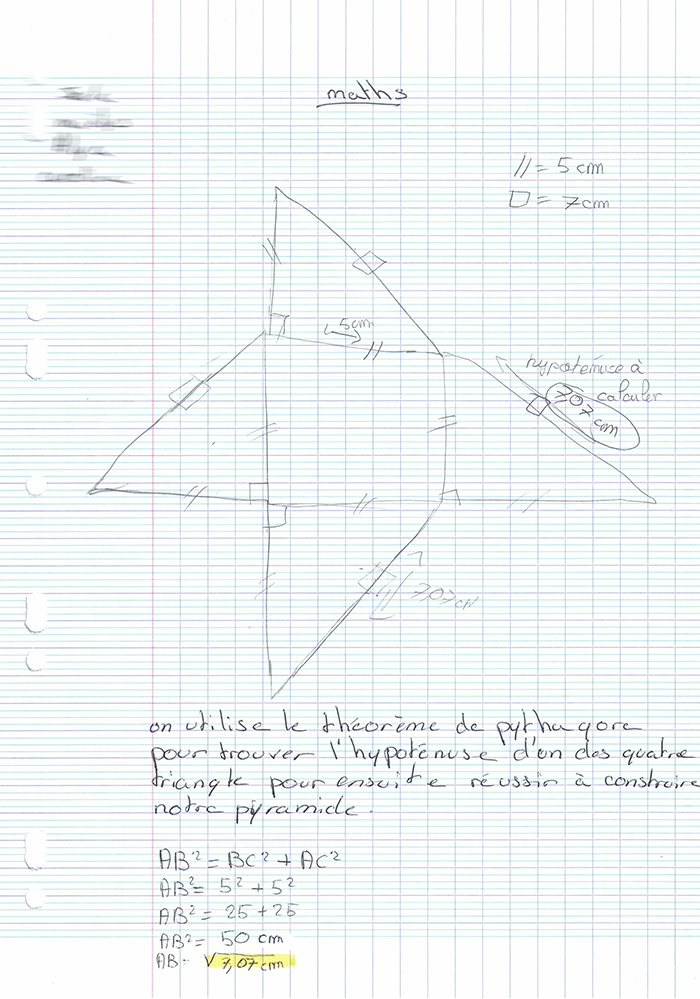 maths
// = 5 cm
▱ = 7 cm
5cm
hypoténuse à
calculer
7,07
cm
7,07 cm
on utilise le théorème de pythagore
pour trouver l'hypoténuse d'un des quatre
triangle pour ensuite réussir à construire
notre pyramide.
AB² = BC² + AC²
AB² = 5² + 5²
AB² = 25 + 25
AB² = 50 cm
AB = √7,07 cm